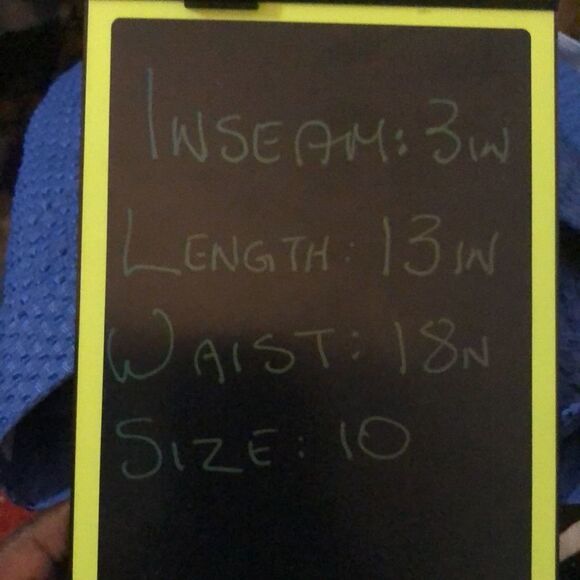 INSEAM: 3IN
LENGTH: 13IN
WAIST: 18N
SIZE: 10